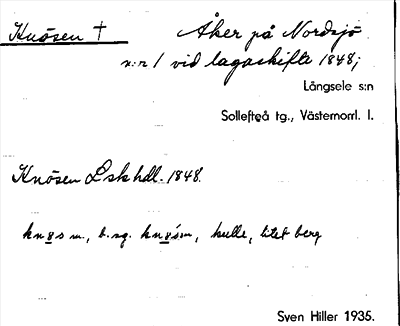 Knösen † Åker på Nordsjö
n:r 1 vid lagaskifte 1848;
Långsele s:n
Sollefteå tg., Västernorrl. l.
Knösen Lskhdl. 1848.
knøs m., b. sg. knøsn, kulle, litet berg
Sven Hiller 1935.